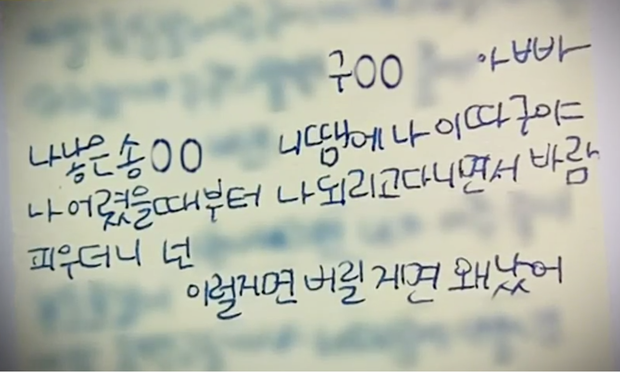 구OO 아빠바
나낳은송OO 니땜에나이따구야
나어렸을때부터 나되리고다니면서 바람
피우더니 넌
이럴지면버릴게면왜났어